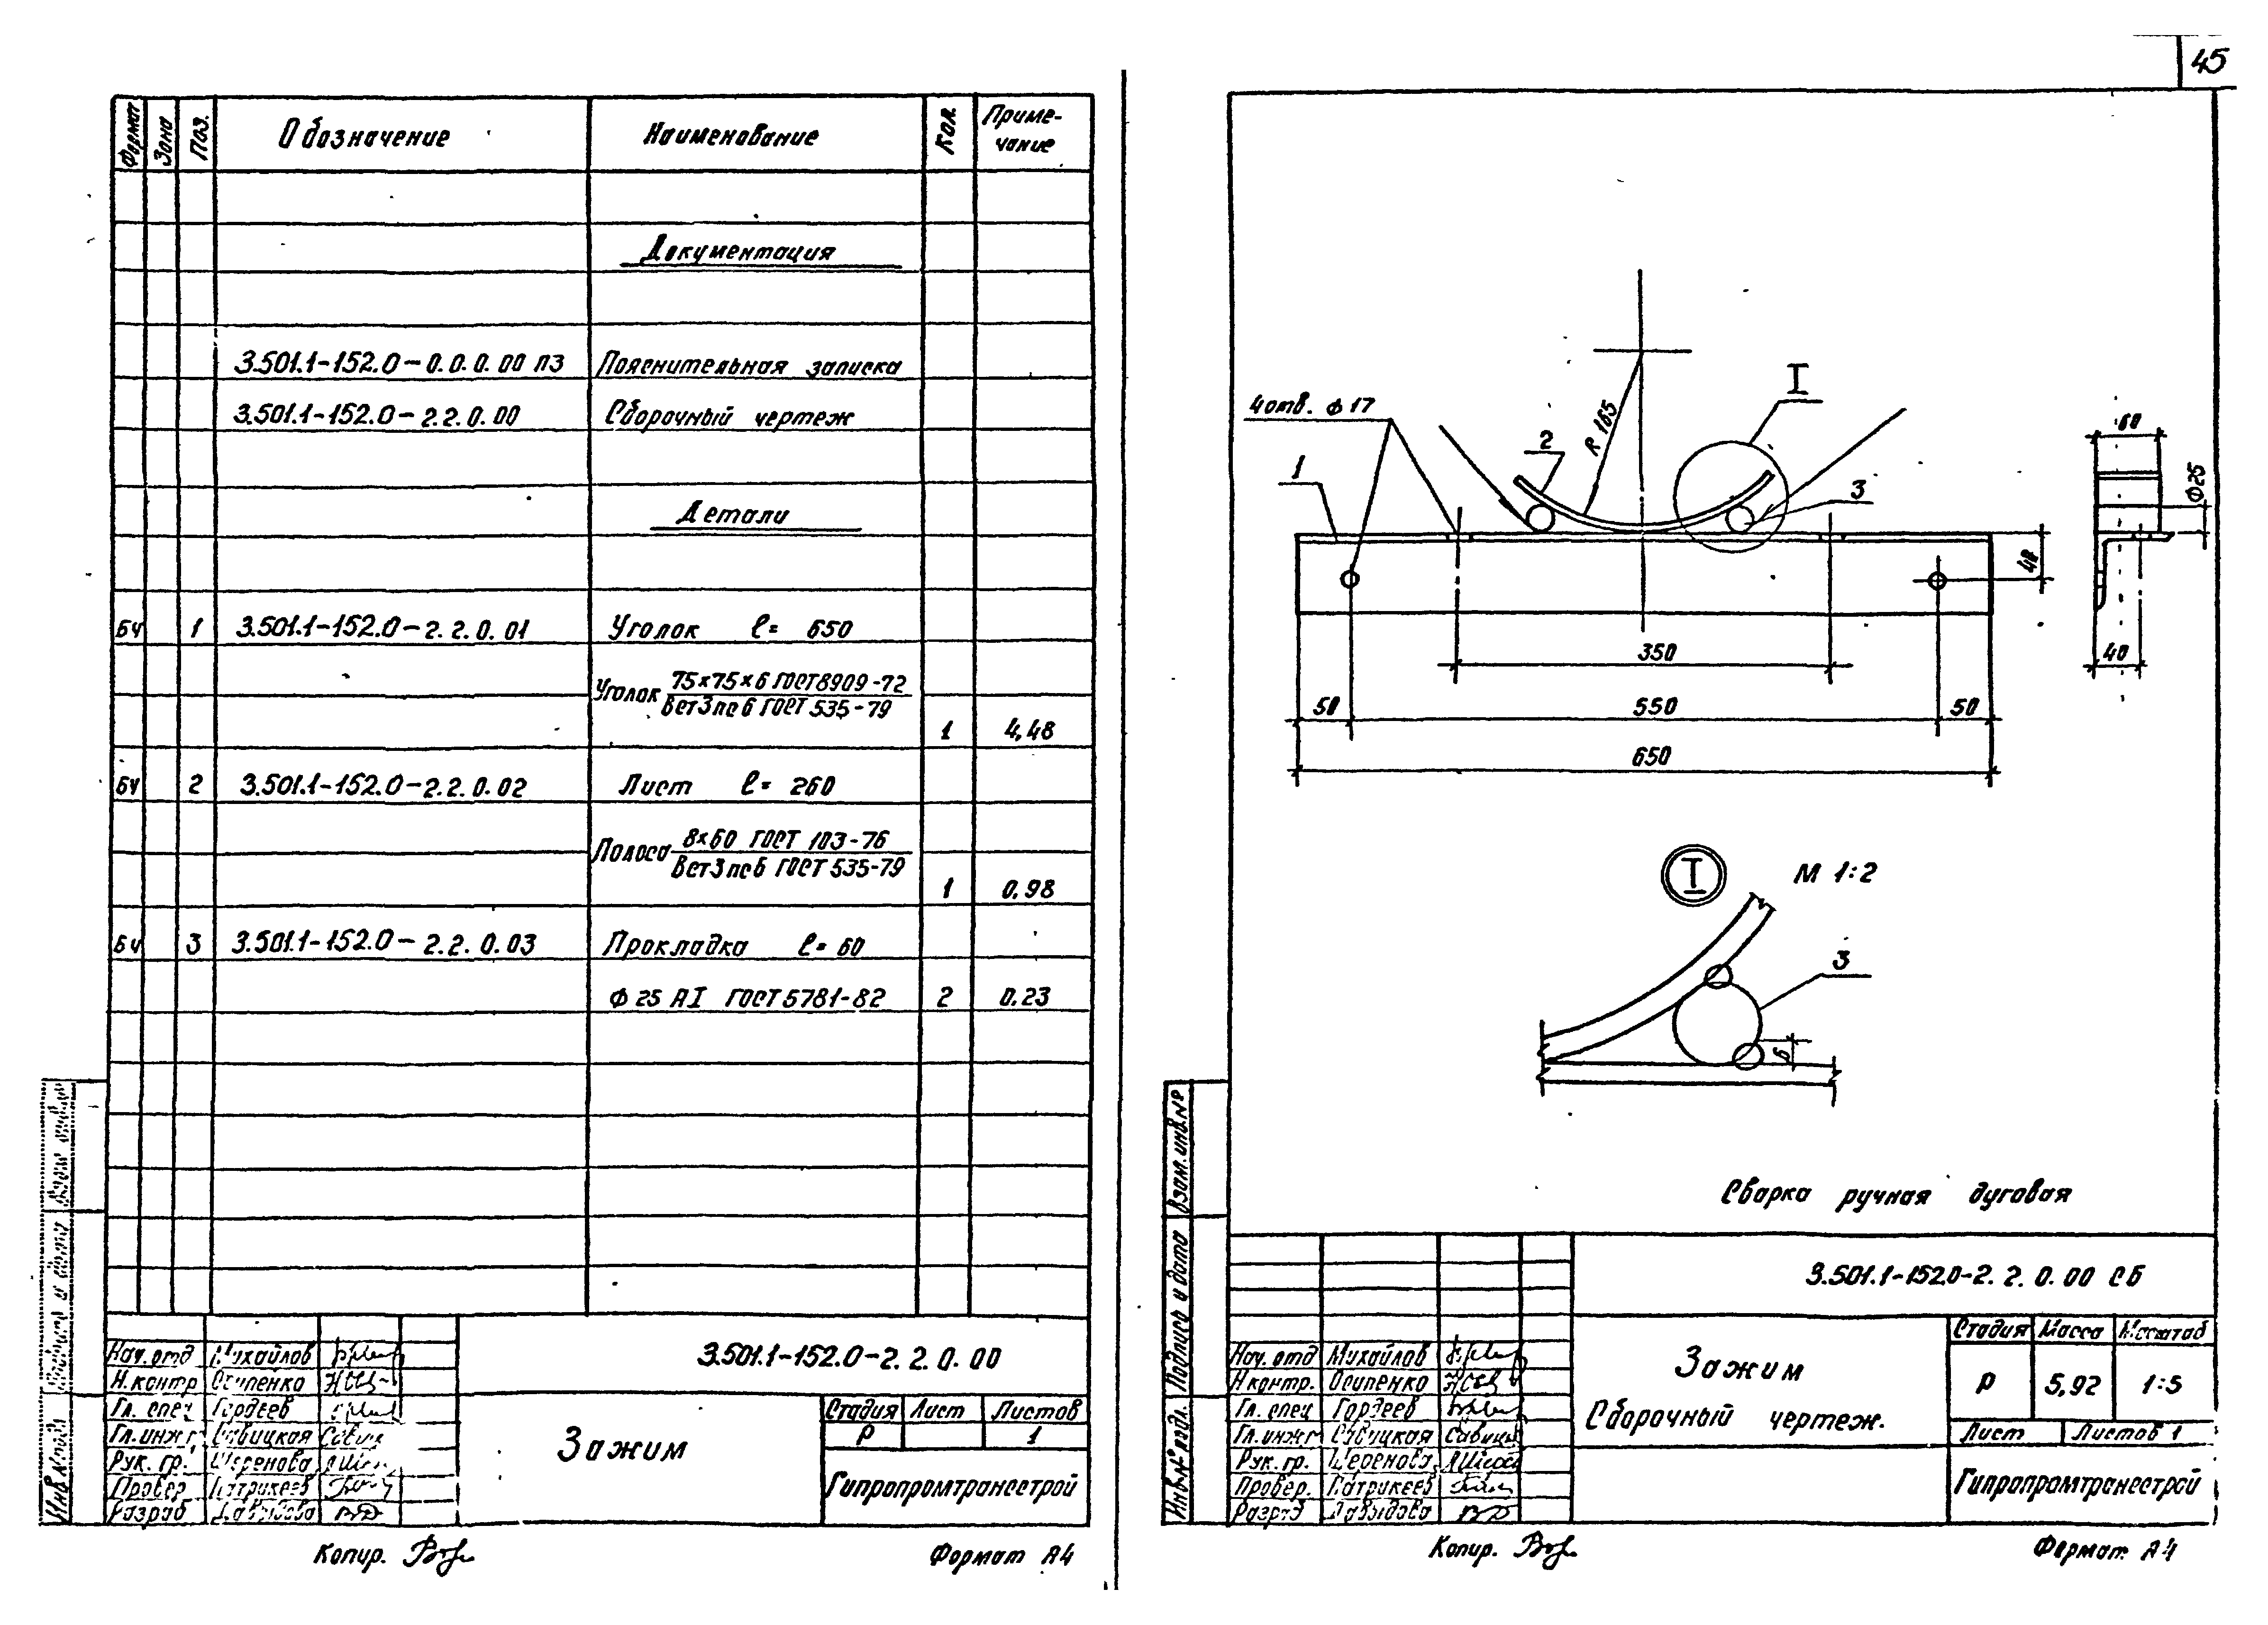 45
Формат Зона Поз. Обозначение Наименование Кол. Приме-
чание
Документация
3.501.1-152.0-0.0.0.00 ПЗ Пояснительная записка
3.501.1-152.0-2.2.0.00 Сборочный чертеж
Детали
БЧ 1 3.501.1-152.0-2.2.0.01 Уголок ℓ= 650
Уголок 75×75×6 ГОСТ 8909-72
Вст3пс6 ГОСТ 535-79
1 4,48
БЧ 2 3.501.1-152.0-2.2.0.02 Лист ℓ= 260
Полоса 8×60 ГОСТ 103-76
Вст3пс6 ГОСТ 535-79
1 0,98
БЧ 3 3.501.1-152.0-2.2.0.03 Прокладка ℓ= 60
Ф 25 АI ГОСТ 5781-82 2 0.23
3.501.1-152.0-2.2.0.00
Нач. отд Михайлов
Н.контр Осипенко
Гл. спец Гордеев
Гл.инж Савицкая
Рук. гр. Шеренова
Провер Патрикеев
Разраб Давыдова
Зажим
Стадия Лист Листов
Р 1
Гипропромтрансстрой
Инв.№подл.
Копир.
Формат А4
4отв. ф 17
1
2
R 165
I
3
60
Ф25
48
40
350
50 550 50
650
I М 1:2
3
6
Сварка ручная дуговая
Взам.инв.№
Подпись и дата
Инв.№подл.
3.501.1-152.0-2.2.0.00 СБ
Нач. отд Михайлов
Н.контр. Осипенко
Гл. спец Гордеев
Гл.инж Савицкая
Рук. гр. Шеренова
Провер. Патрикеев
Разраб Давыдова
Зажим
Сборочный чертеж.
Стадия Масса Масштаб
Р 5,92 1:5
Лист Листов 1
Гипропромтрансстрой
Копир.
Формат А4